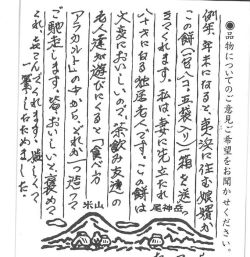 ●品物についてのご意見ご希望をお聞かせください。
例年、年末になると東浜に住む娘嬪が
この餅(百八コ、五袋入り)一箱を送っ
てきてくれます。私は妻に先立たれ
八十才になる独居老人です。この餅は
大変においしいので、茶飲み友達の
老人達が遊びにくると「食べ方
アラカルト」の中から、どれか一つ造って
ご馳走します。皆おいしいと褒めて
くれ、喜んでくれます。嬉しくて
一筆したためました。
尾神岳
米山